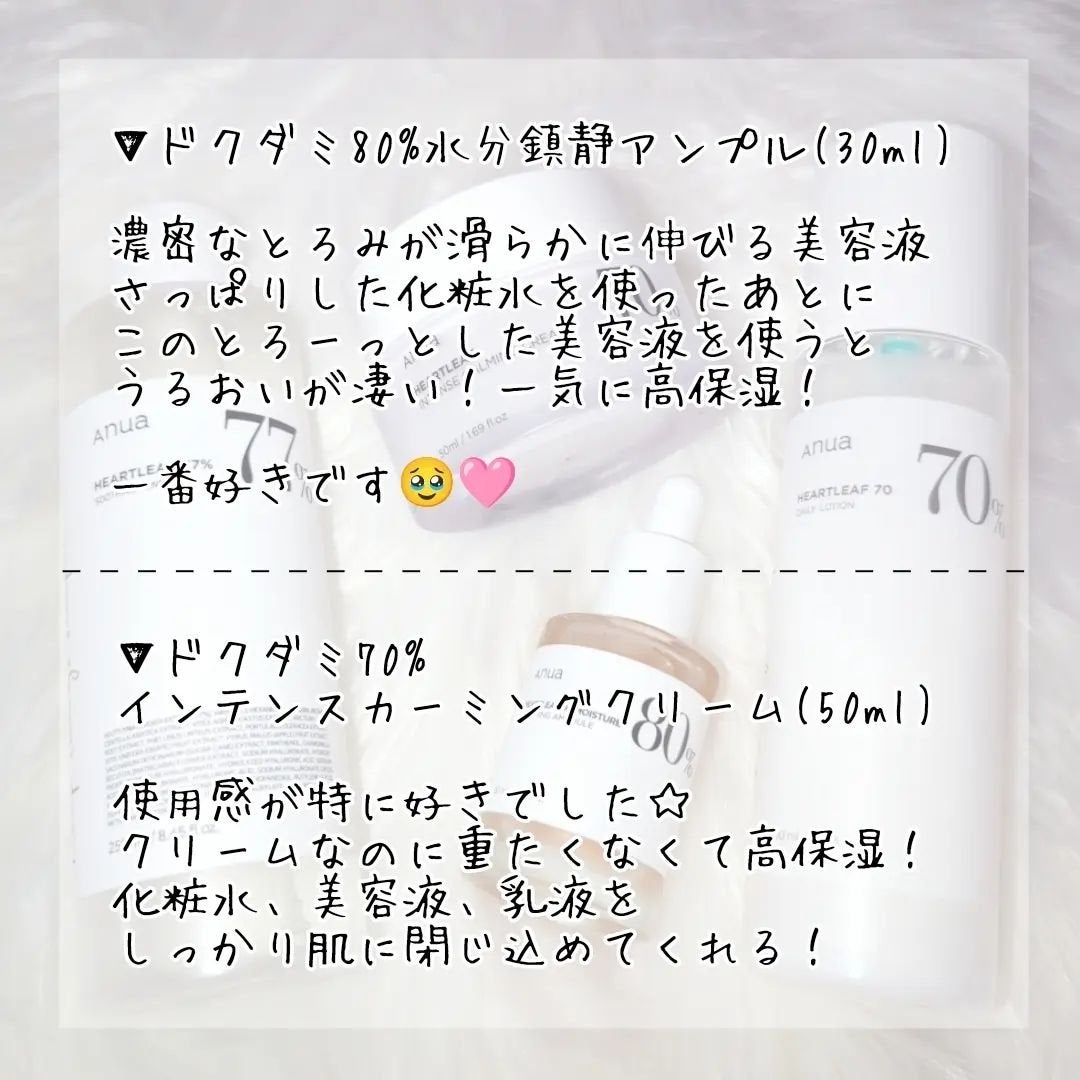 ▼ドクダミ80%水分鎮静アンプル(30ml)
濃密なとろみが滑らかに伸びる美容液
さっぱりした化粧水を使ったあとに
このとろーっとした美容液を使うと
うるおいが凄い！一気に高保湿！
一番好きです🥹🩷
▼ドクダミ70%
インテンスカーミングクリーム(50ml)
使用感が特に好きでした☆
クリームなのに重たくなくて高保湿！
化粧水、美容液、乳液を
しっかり肌に閉じ込めてくれる！
Anua
77%
HEARTLEAF 77%
Anua
HEARTLEAF
50ml / 1.69 fl.oz
Anua
70%
HEARTLEAF 70
DAILY LOTION
Anua
80%